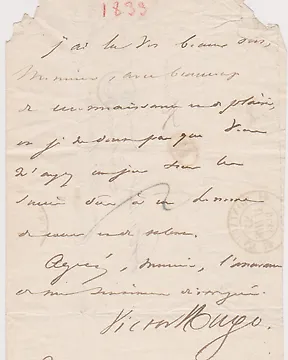 1833
j'ai lu vos beaux vers,
Monsieur, avec beaucoup
de reconnaissance et de plaisir,
et je ne doute pas que vous
n'ayez un jour tout le
succès dû à un homme
de cœur et de talent.
Agréez, Monsieur, l'assurance
de mes sentimens distingués.
Victor Hugo.